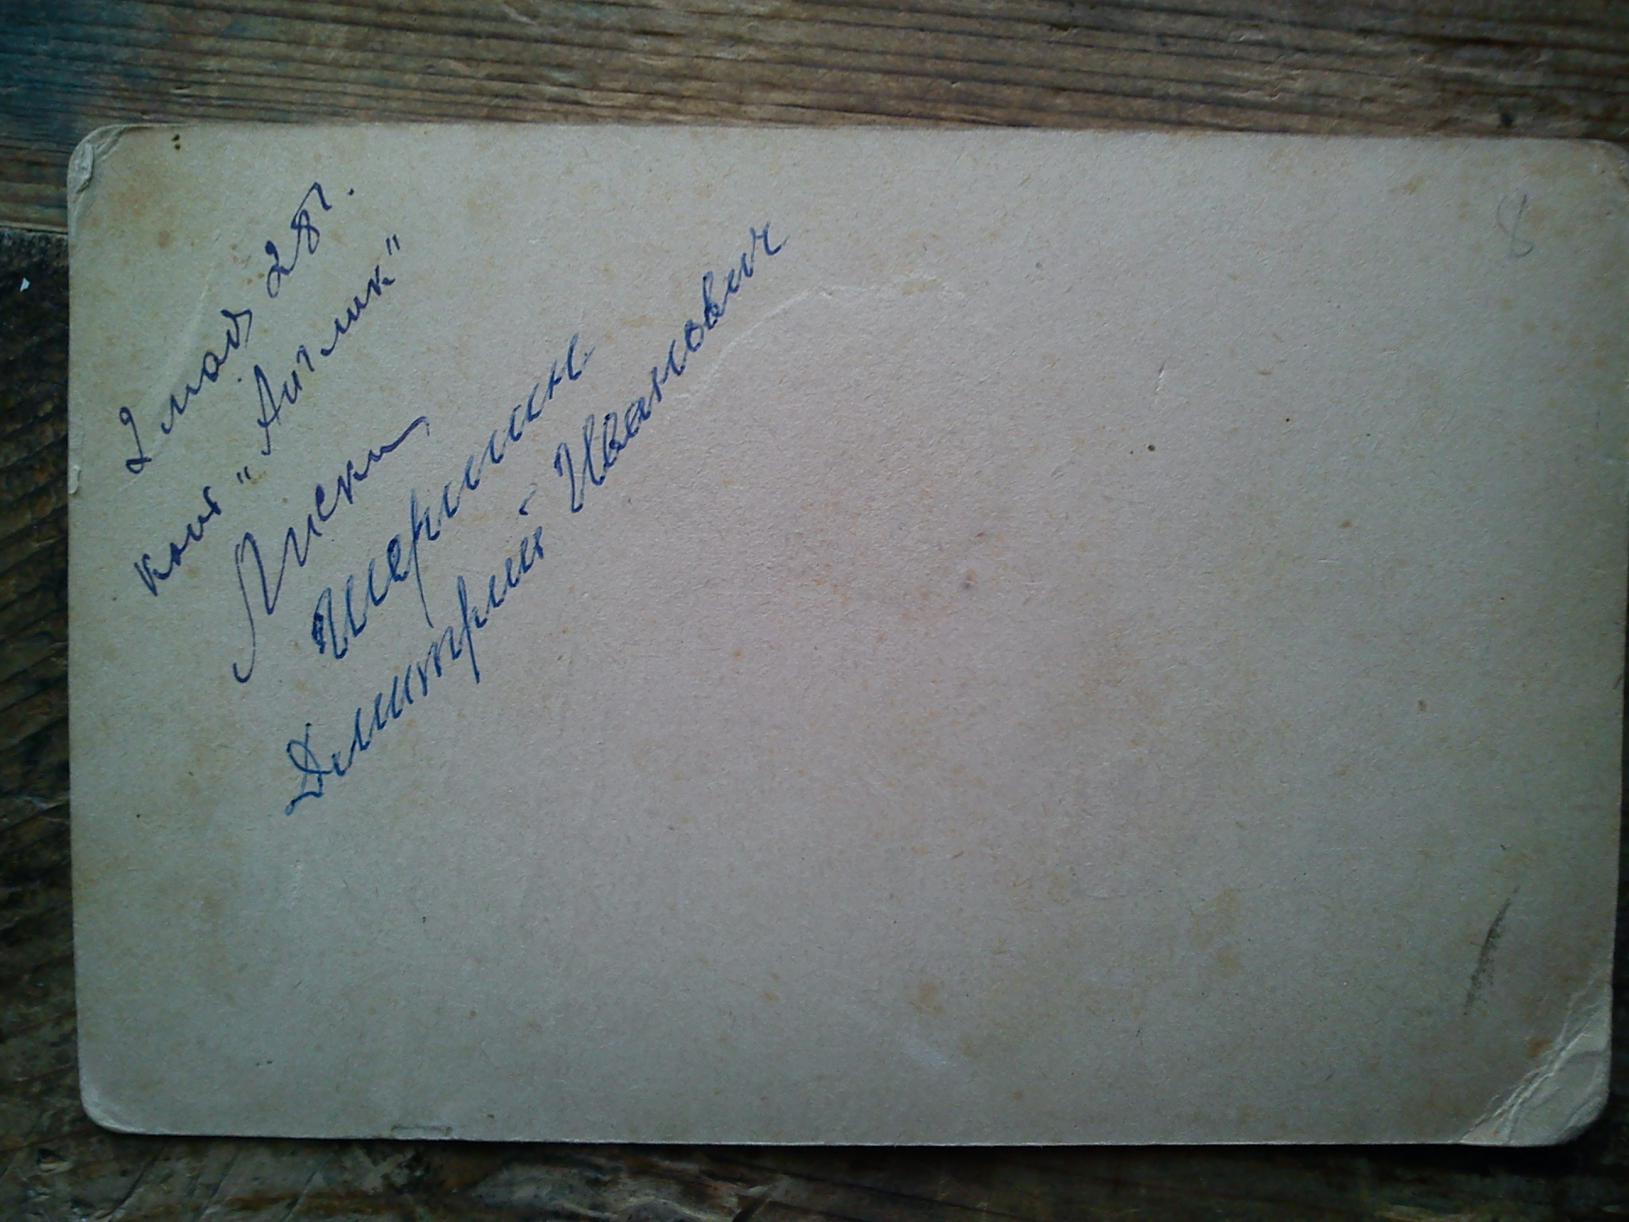 2 мая 28 г.
кон. "Англик"
Лиски
Шерикин
Дмитрий Иванович
8